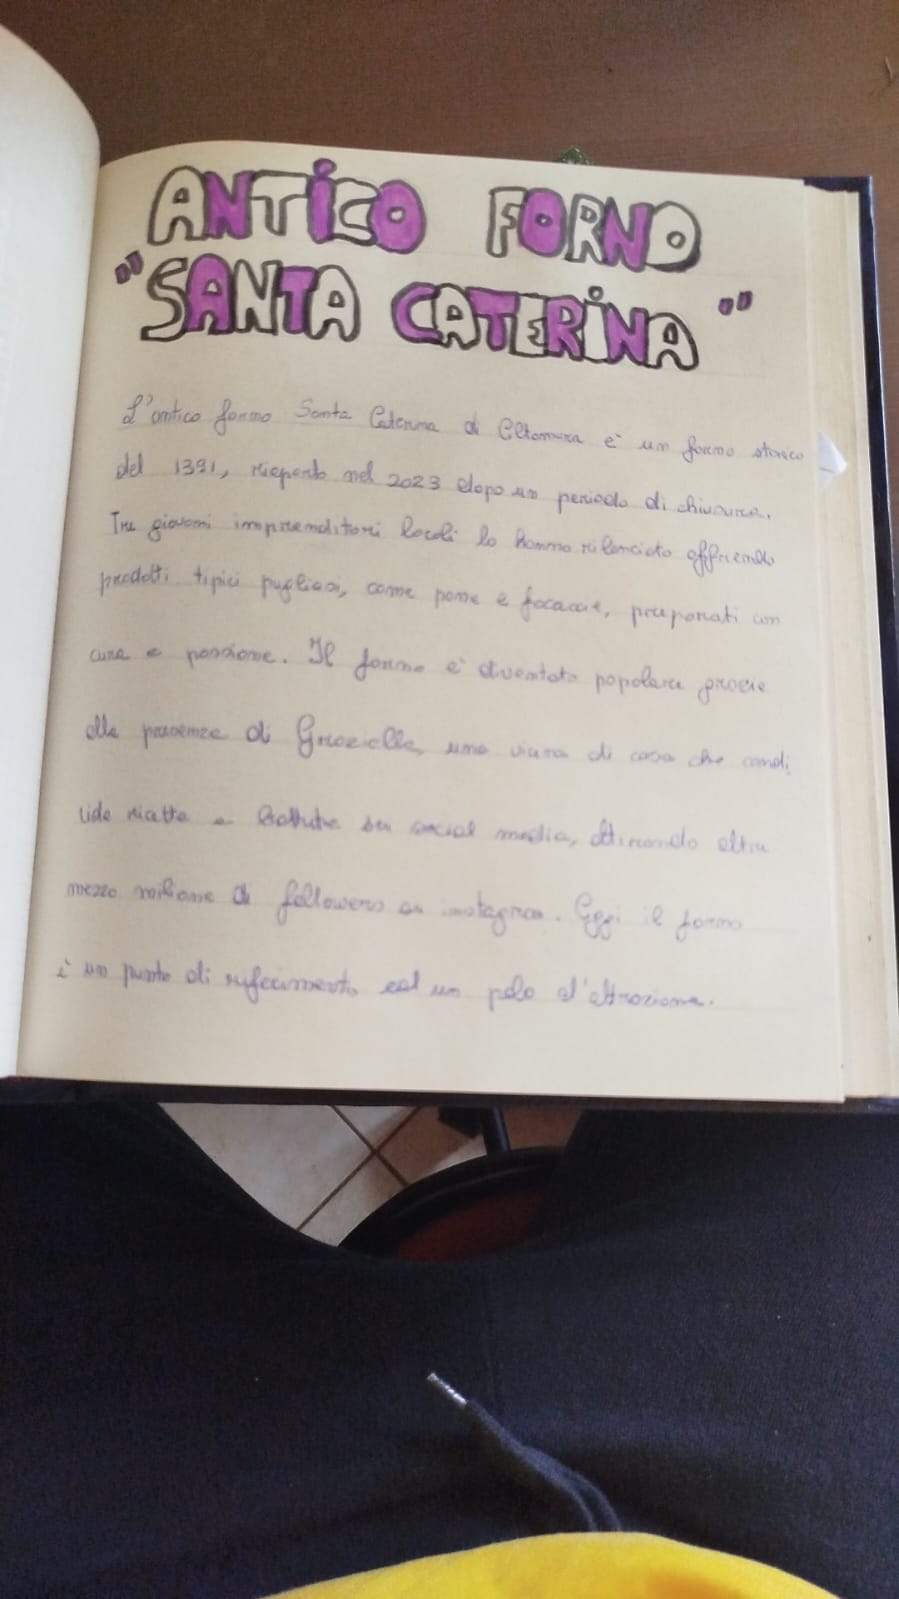 ANTICO FORNO
"SANTA CATERINA"
L'antico forno Santa Caterina di Altamura è un forno storico
del 1391, riaperto nel 2023 dopo un periodo di chiusura.
Tre giovani imprenditori locali lo hanno rilanciato offrendo
prodotti tipici pugliesi, come pane e focacce, preparati con
cura e passione. Il forno è diventato popolare grazie
alla presenza di Graziella, una vicina di casa che condi
vide ricette e battute sui social media, attirando oltre
mezzo milione di followers su instagram. Oggi il forno
è un punto di riferimento ed un polo d'attrazione.